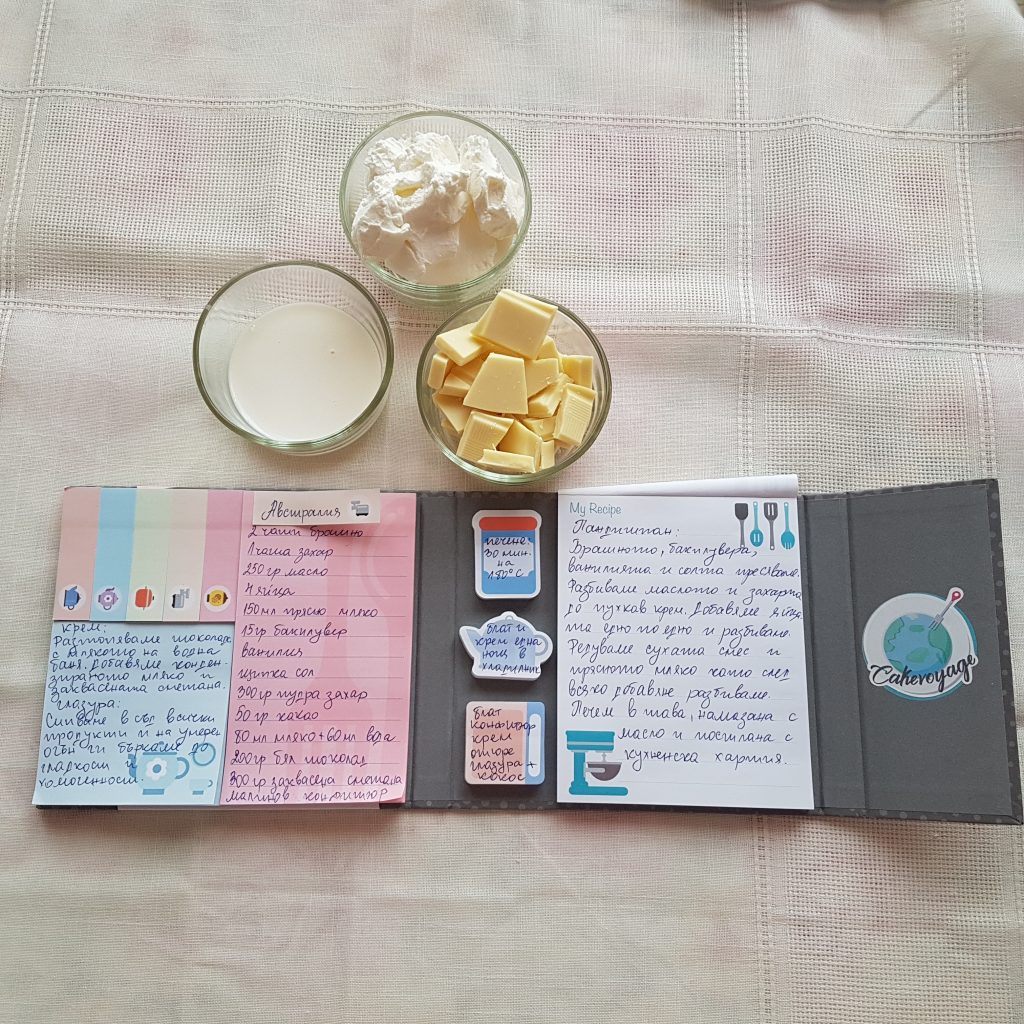 Австралия
2 чаши брашно
1 чаша захар
250 гр масло
4 яйца
150 мл прясно мляко
15 гр бакпулвер
ванилия
щипка сол
300 гр пудра захар
50 гр какао
80 мл мляко + 60 мл вода
200 гр бял шоколад
300 гр заквасена сметана
малинов конфитюр
крем:
Разтопяваме шоколада
с млякото на водна
баня. Добавяме конден-
зираното мляко и
заквасената сметана.
глазура:
Сипваме в съд всички
продукти и на умерен
огън ги бъркаме до
гладкост и
хомогенност.
печене:
30 мин.
на
180°C
блат и
крем една
нощ в
хладилник
блат
конфитюр
крем
отгоре
глазура +
кокос
My Recipe
Пандишпан:
Брашното, бакпулвера,
ванилията и солта пресяваме.
Разбиваме маслото и захарта
до пухкав крем. Добавяме яйца-
та едно по едно и разбиваме.
Редуваме сухата смес и
прясното мляко като след
всяко добавяне разбиваме.
Печем в тава, намазана с
масло и постлана с
кухненска хартия.
Cakevoyage